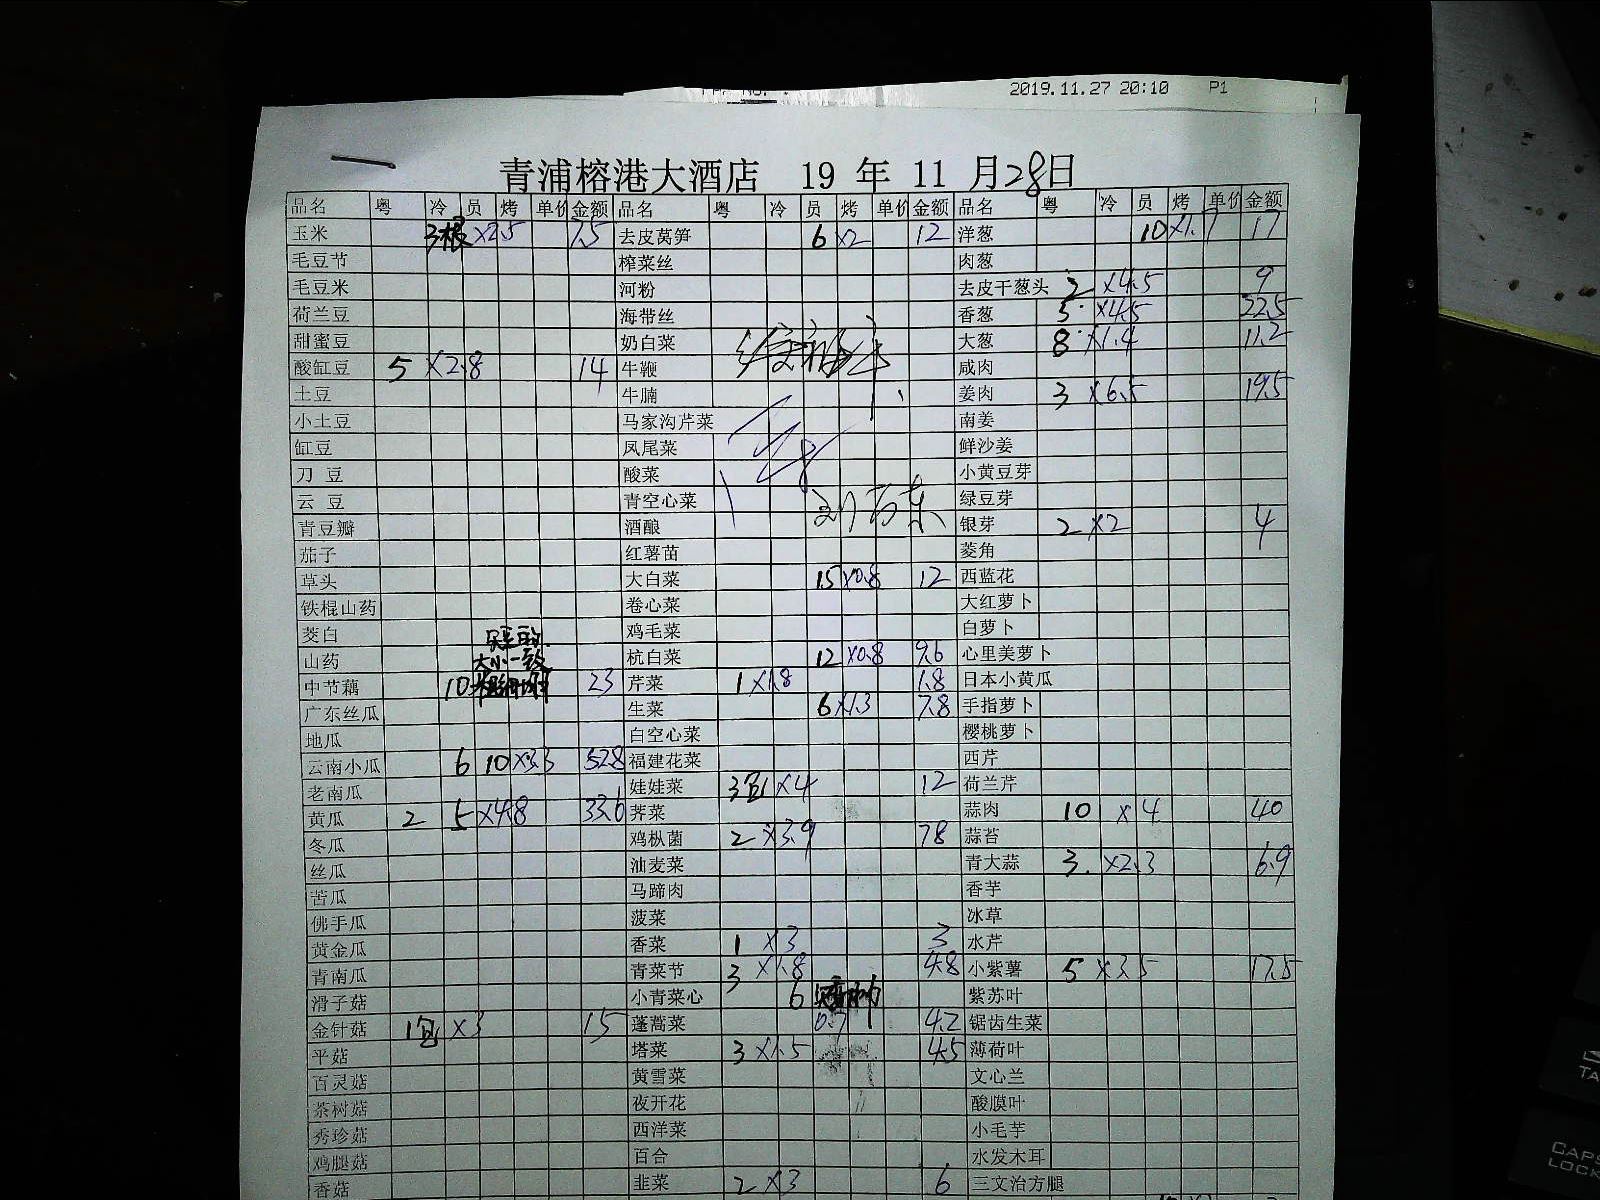 2019.11.27 20:10 P1
青浦榕港大酒店 19 年 11 月28日
品名 粤 冷 员 烤 单价 金额 品名 粤 冷 员 烤 单价 金额 品名 粤 冷 员 烤 单价 金额
玉米 3根 ×2.5 7.5 去皮莴笋 6 ×2 12 洋葱 10 ×1.7 17
毛豆节 榨菜丝 肉葱
毛豆米 河粉 去皮干葱头 2 ×4.5 9
荷兰豆 海带丝 香葱 5 ×4.5 22.5
甜蜜豆 奶白菜 大葱 8 ×1.4 11.2
酸缸豆 5 ×2.8 14 牛鞭 咸肉
土豆 牛腩 姜肉 3 ×6.5 19.5
小土豆 马家沟芹菜 南姜
缸豆 凤尾菜 鲜沙姜
刀 豆 酸菜 小黄豆芽
云 豆 青空心菜 绿豆芽
青豆瓣 酒酿 银芽 2 ×2 4
茄子 红薯苗 菱角
草头 大白菜 15 ×0.8 12 西蓝花
铁棍山药 卷心菜 大红萝卜
茭白 鸡毛菜 白萝卜
山药 大小一致 杭白菜 12 ×0.8 9.6 心里美萝卜
中节藕 10 23 芹菜 1 ×1.8 1.8 日本小黄瓜
广东丝瓜 生菜 6 ×1.3 7.8 手指萝卜
地瓜 白空心菜 樱桃萝卜
云南小瓜 6 10 ×3.3 52.8 福建花菜 西芹
老南瓜 娃娃菜 3包 ×4 12 荷兰芹
黄瓜 2 5 ×4.8 33.6 荠菜 蒜肉 10 ×4 40
冬瓜 鸡枞菌 2 ×3.9 7.8 蒜苔
丝瓜 油麦菜 青大蒜 3 ×2.3 6.9
苦瓜 马蹄肉 香芋
佛手瓜 菠菜 冰草
黄金瓜 香菜 1 ×3 3 水芹
青南瓜 青菜节 3 ×1.8 4.8 小紫薯 5 ×3.5 17.5
滑子菇 小青菜心 6 紫苏叶
金针菇 1包 ×3 15 蓬蒿菜 0.7 4.2 锯齿生菜
平菇 塔菜 3 ×1.5 4.5 薄荷叶
百灵菇 黄雪菜 文心兰
茶树菇 夜开花 酸膜叶
秀珍菇 西洋菜 小毛芋
鸡腿菇 百合 水发木耳
香菇 韭菜 2 ×3 6 三文治方腿
CAPS
LOCK